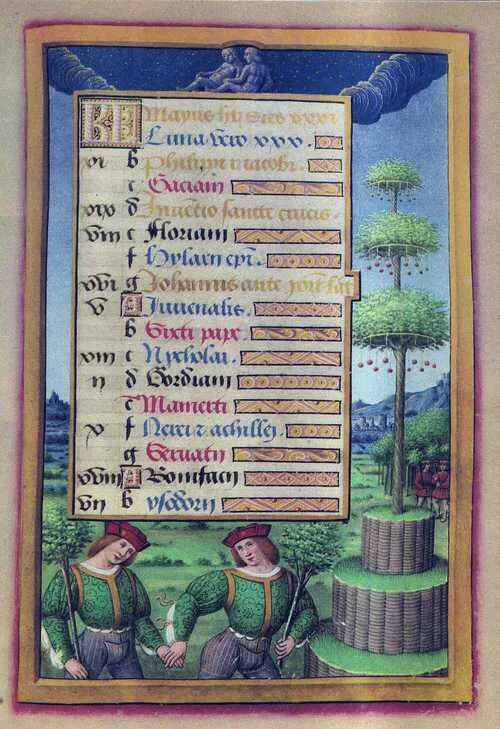 KL Mayus hit dies xxxi
Luna vero xxx.
xi b Philippi z iacobi.
c Gaciani
xix d Inuẽtio sancte crucis.
viii e Floriani
f Hylarii epĩ.
xvi g Johannis ante port lat
v A Juuenalis.
b Sixti pape
xiii c Nycholai.
ii d Gordiani
e Mamerti
x f Nerei z achillei
g Seruatii
xviii A Bonifacii
vii b ysodorii